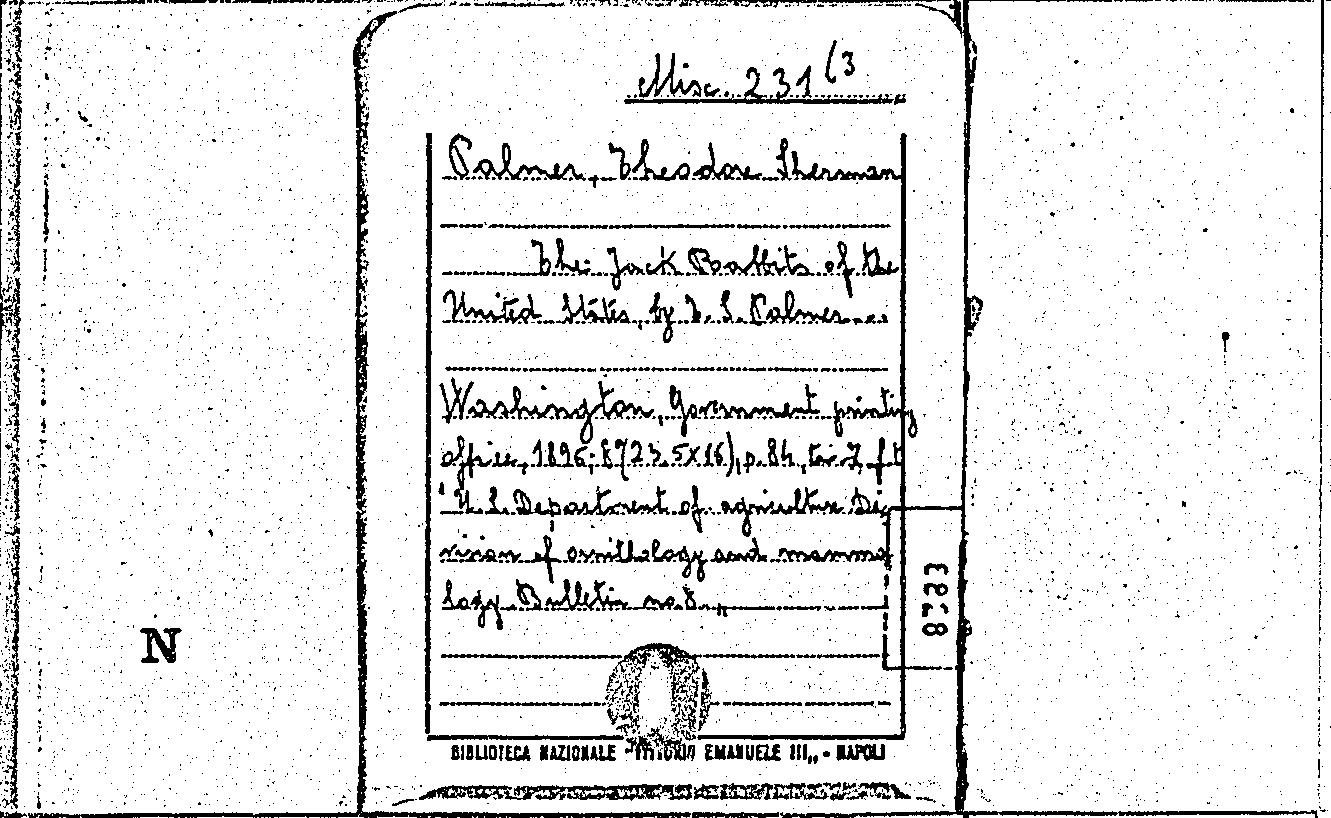 Misc. 231(3
Palmer, Theodore Sherman
The Jack Rabbits of the
United States, by T. S. Palmer...
Washington, Government printing
office, 1896; 8°(23.5x16), p. 84, tav 7, f.t
"U. S. Department of agriculture Di
vision of ornithology and mamma
logy Bulletin no. 8"
3278
N
BIBLIOTECA NAZIONALE "VITTORIO EMANUELE III„ - NAPOLI